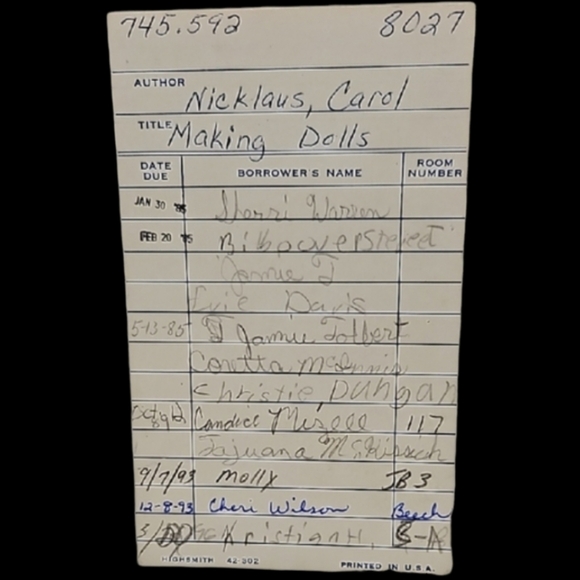 745.592 8027
AUTHOR Nicklaus, Carol
TITLE Making Dolls
DATE DUE BORROWER'S NAME ROOM NUMBER
JAN 30 '85 Sherri Warren
FEB 20 '85 Bill
Jamie T
Evie Davis
5-13-85 Jamie Tolbert
Coretta McGinnis
Christie, Dungan
Candice Mizell 117
Tajuana
9/7/93 Molly JB3
12-8-93 Cheri Wilson Beech
Kristian H. S-A
HIGHSMITH 42-302 PRINTED IN U.S.A.